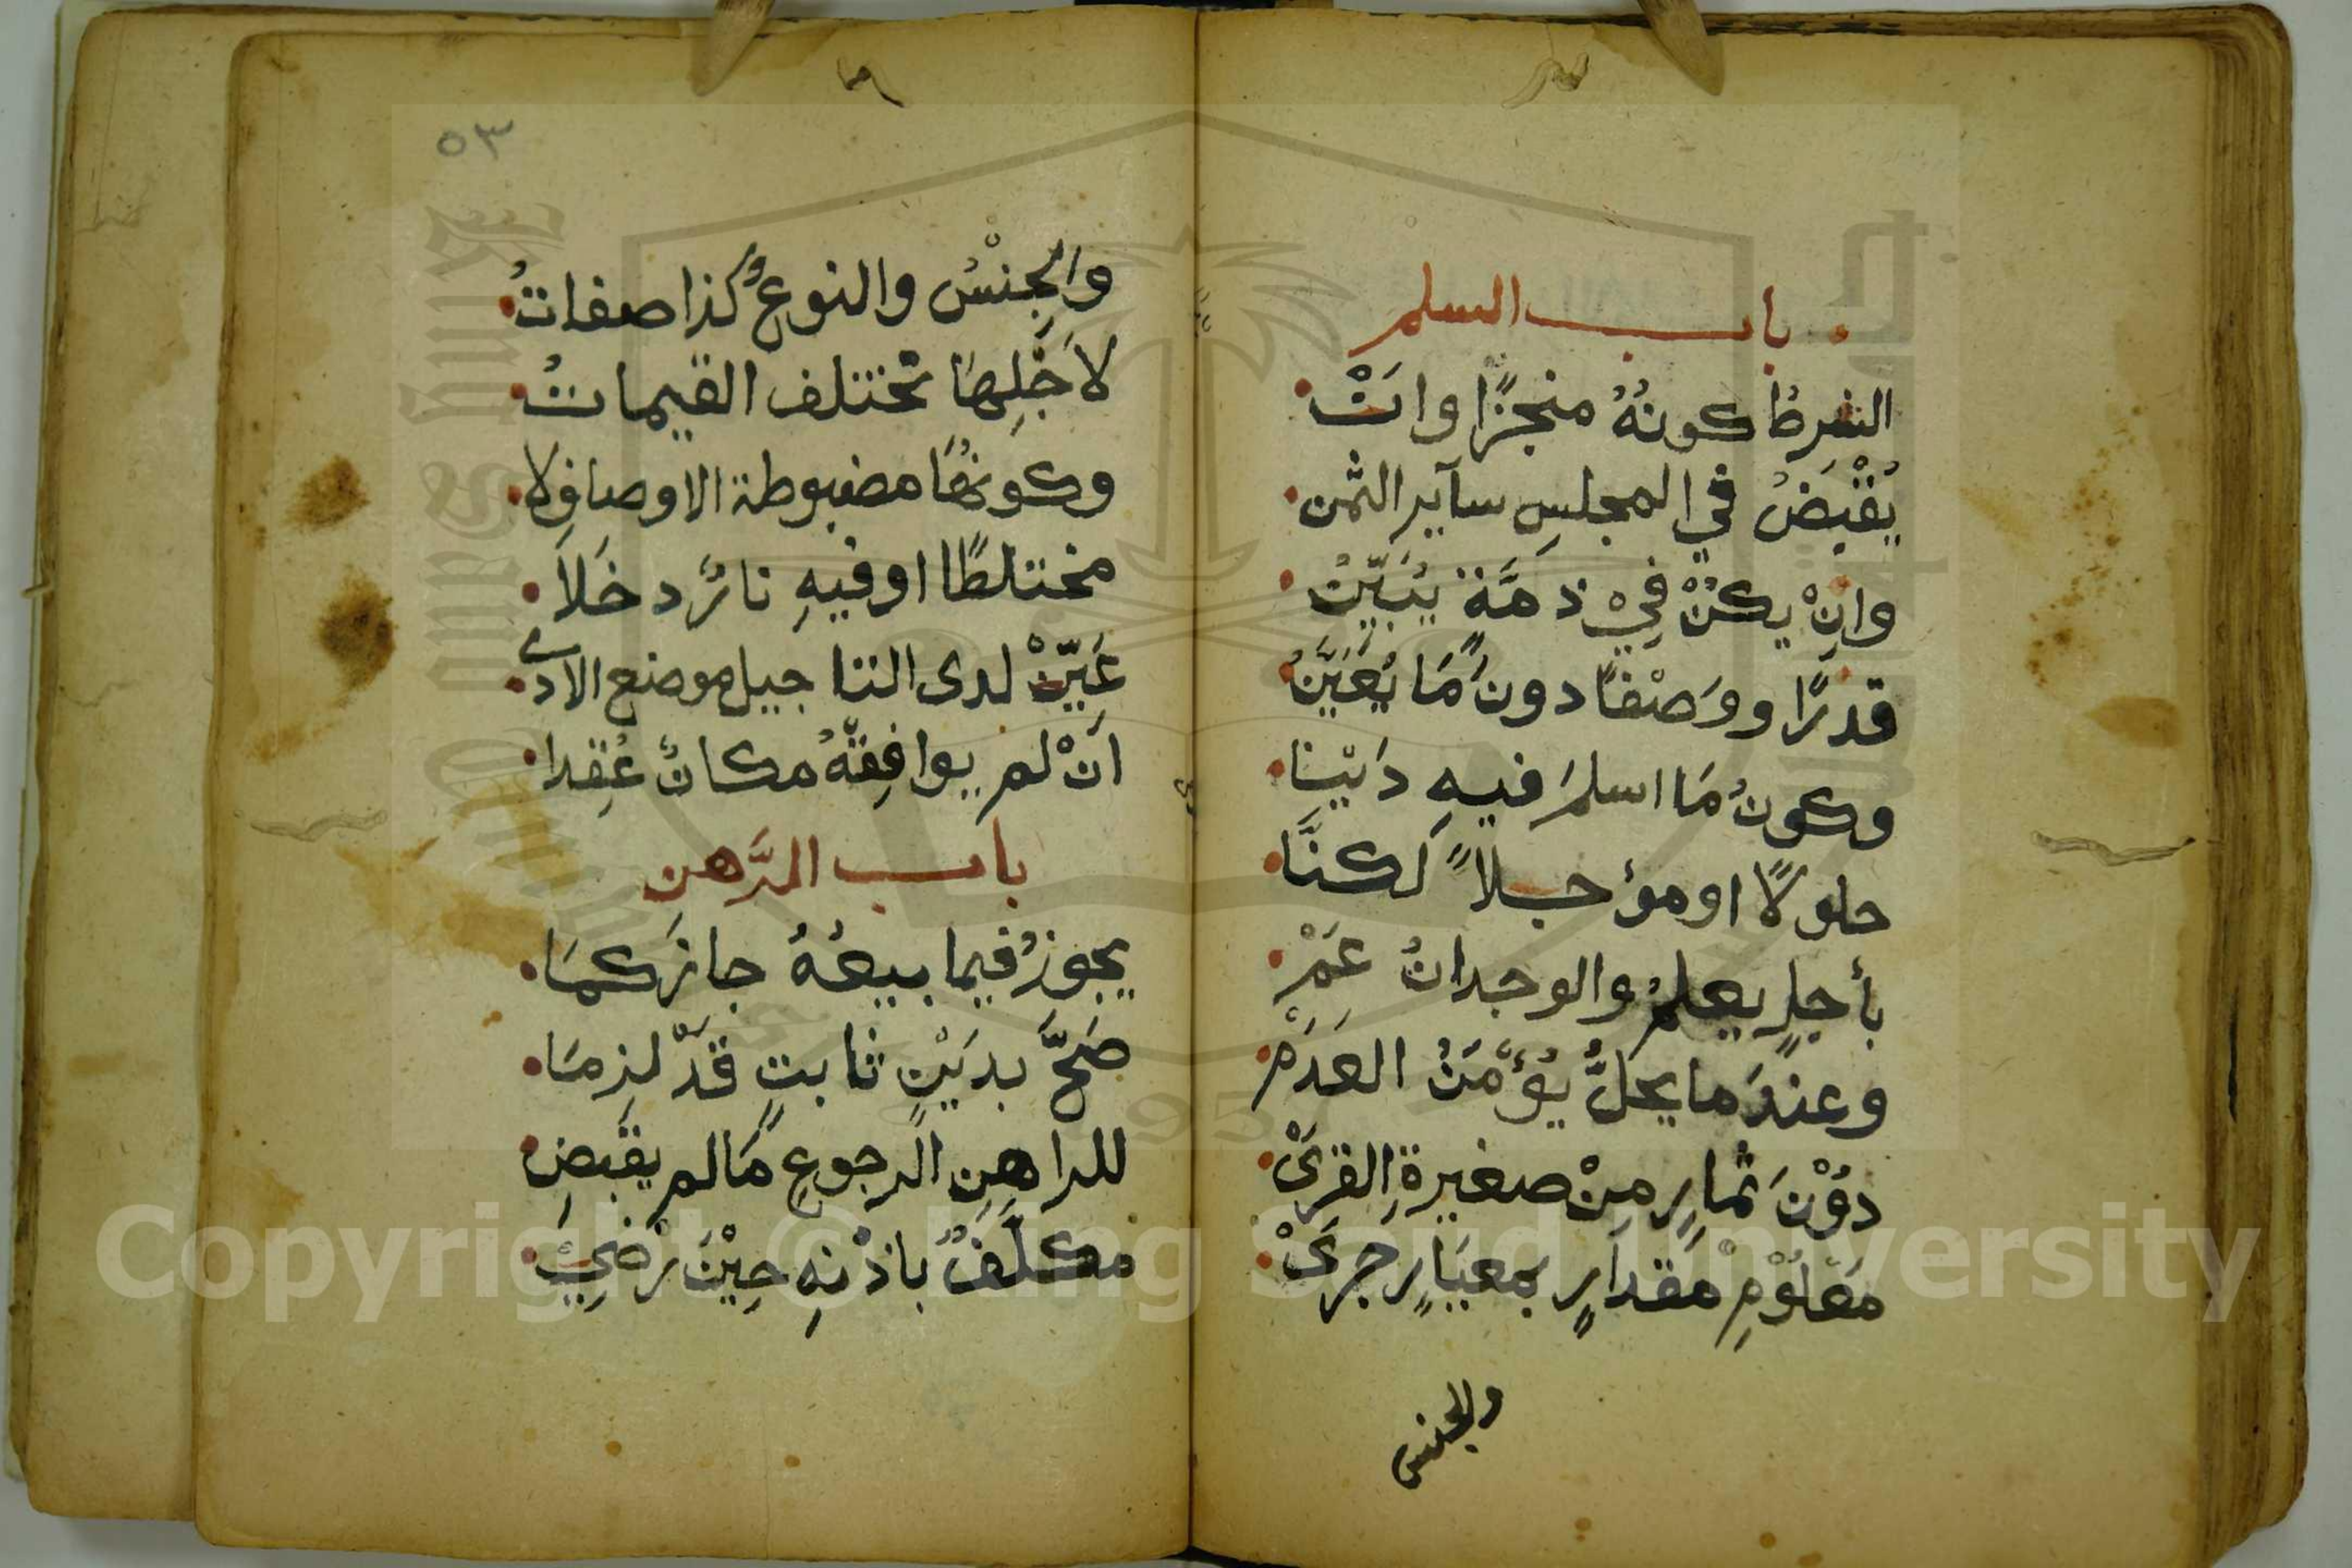 باب السلم
الشرطُ كونهُ منجزًا وانْ
يُقْبَضُ في المجلسِ سآير الثمن
وانْ يكنْ فيْ ذمَّة يُبَيّنُ
قدرًا ووَصْفًا دونَ مَا يُعَيَّنُ
وكونُ مَا اسلمَ فيهِ دَيْنا
حلولًا او مؤجلاً لكنَّا
بأجلٍ يعلمُ والوجدانُ عَمْ
وعندَ ما يحلُّ يُؤْمَنُ العَدَمْ
دوْنَ ثمارٍ مِنْ صغيرةِ القرىْ
مَعْلوْمِ مقدارٍ بمعيَارٍ جَرىْ
والجنس
٥٣
والجِنْسُ والنوعُ كذا صفاتُ
لاَجْلِهَا تختلف القيماتُ
وكونهُا مضبوطة الاوصافِ لا
مختلطًا او فيهِ نارٌ دخَلاَ
عَيّنْ لدى التاجيل موضع الادى
انْ لم يوافِقْهُ مكانٌ عُقِدا
باب الرَّهن
يجوزُ فيما بيعُهُ جازَ كمَا
صَحَّ بدَيْنٍ ثابتٍ قدْ لزِمَا
للراهِنِ الرجوع مَا لم يقْبضِ
مكلَّفٌ باذْنِهِ حِيْنَ رَضِيْ
Copyright © King Saud University